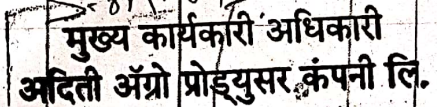 मुख्य कार्यकारी अधिकारी
अदिती ॲग्रो प्रोड्युसर कंपनी लि.